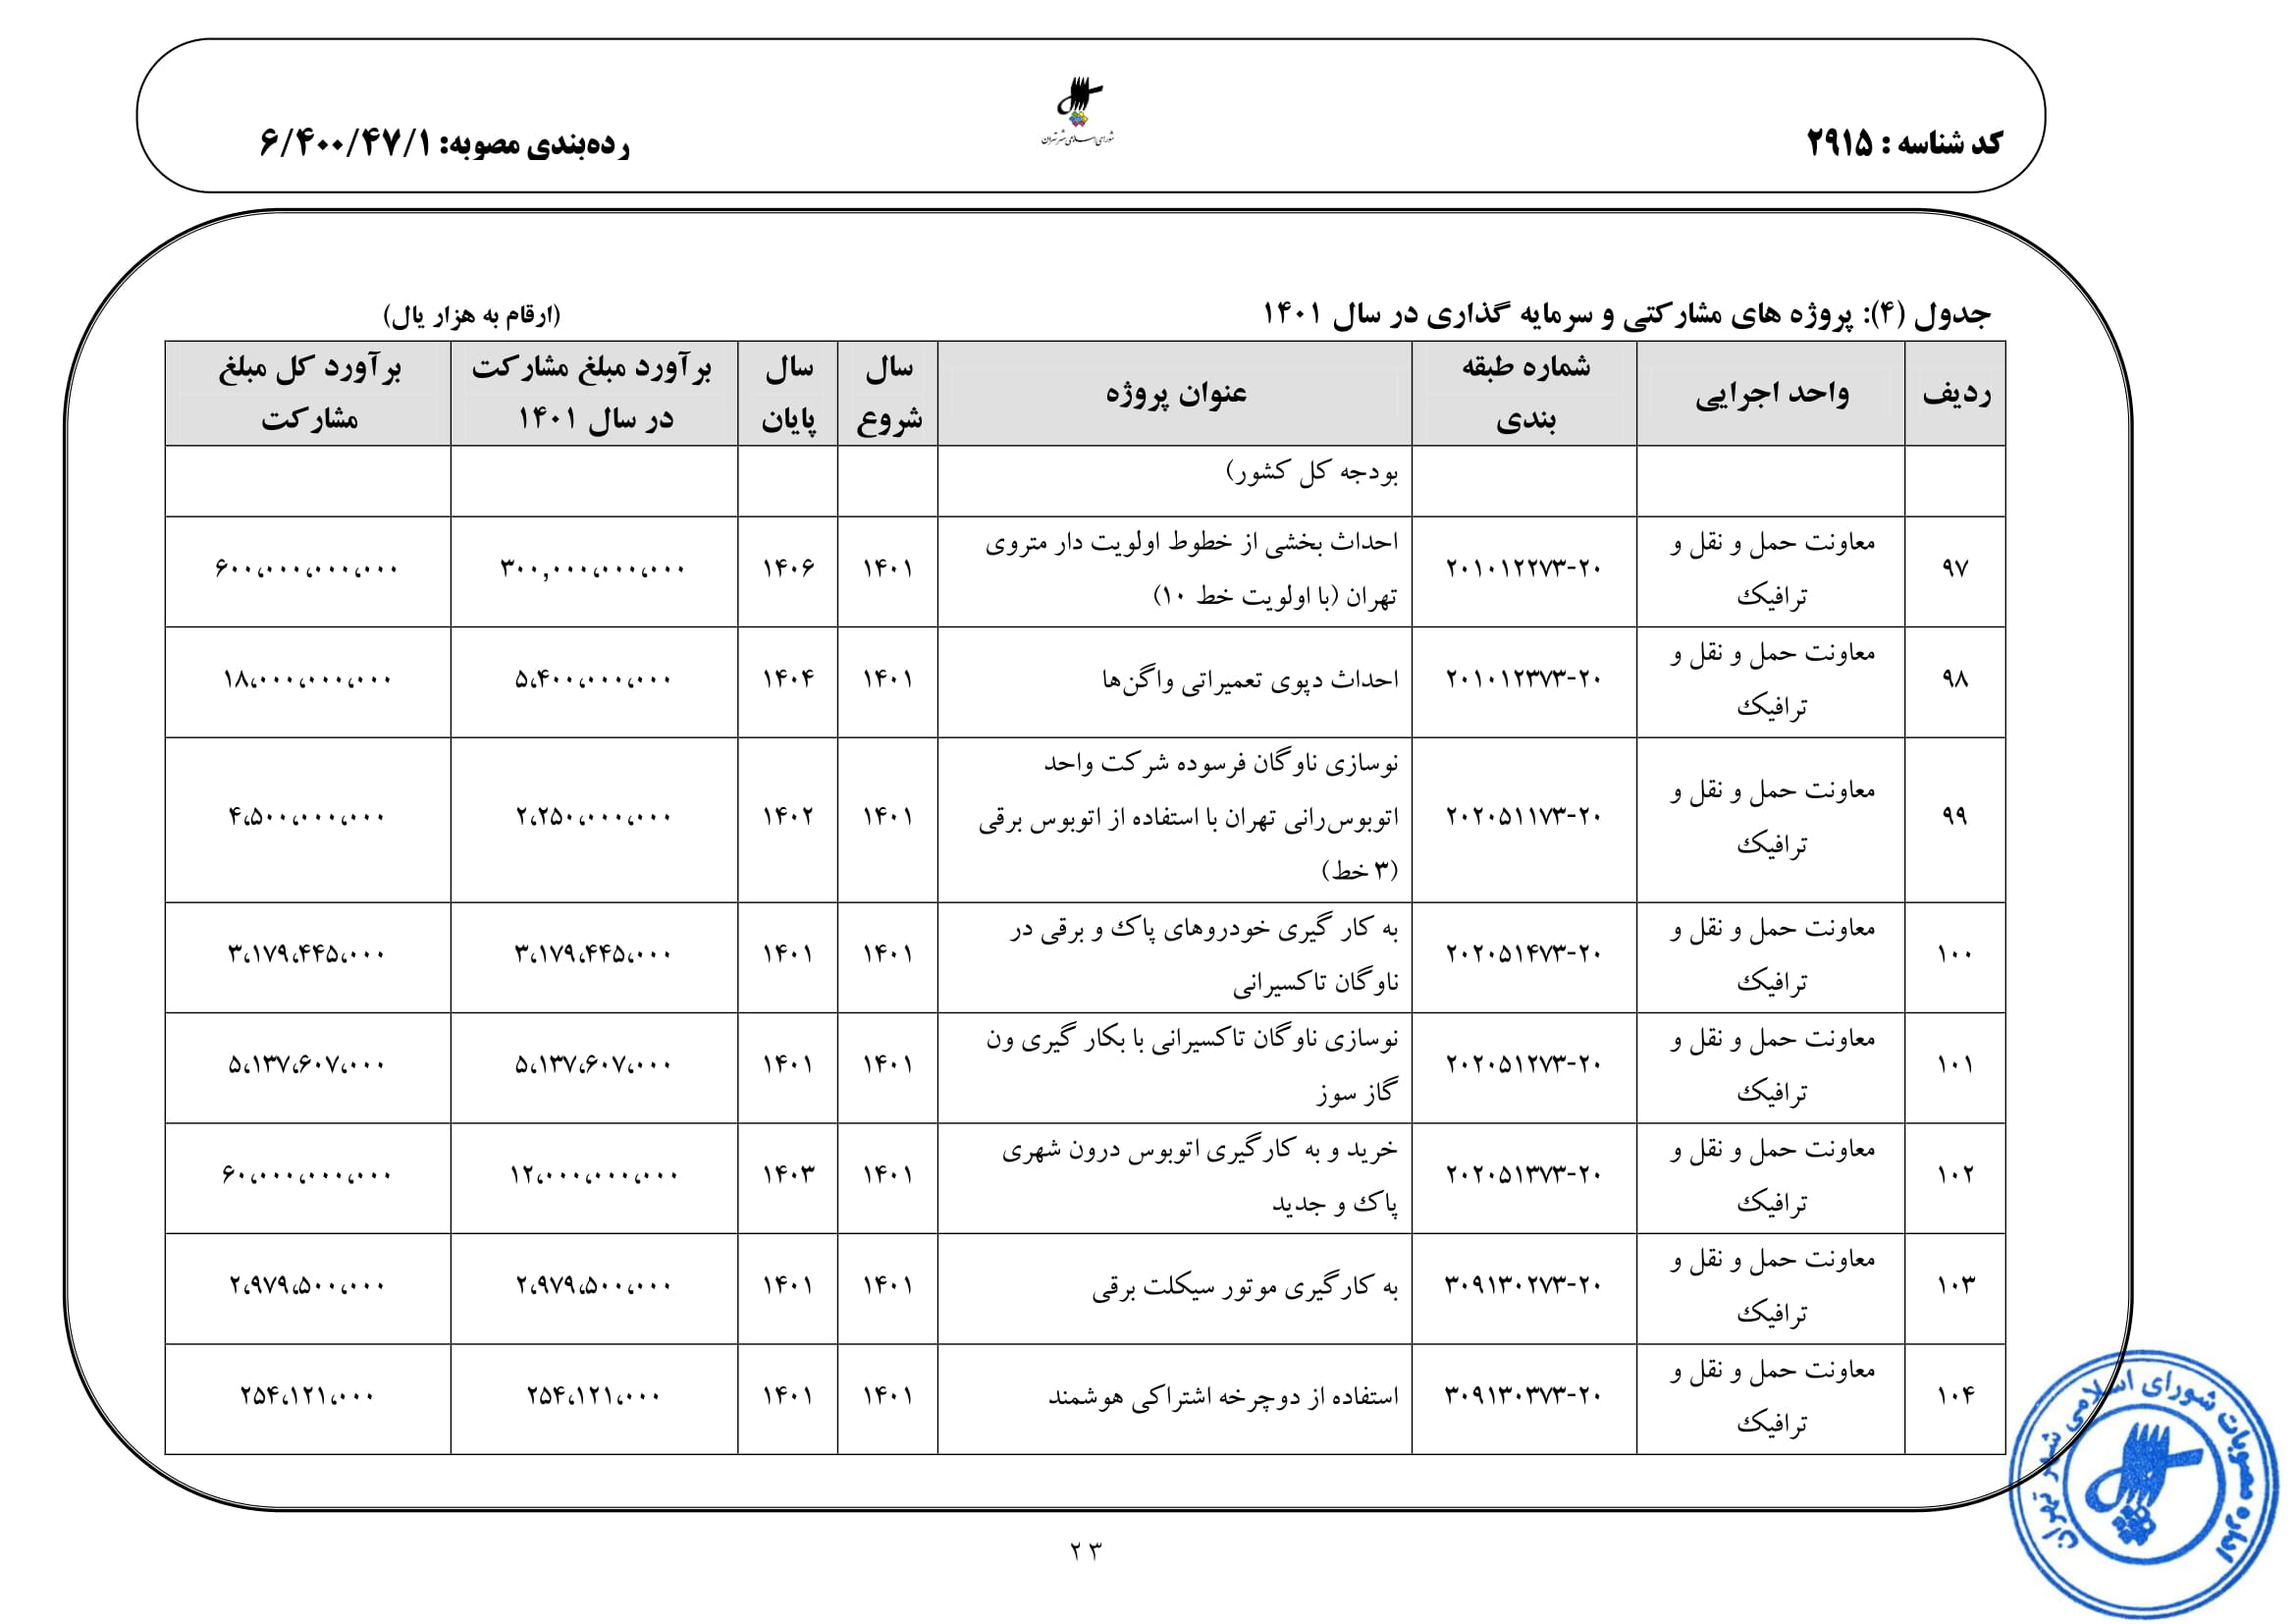 کد شناسه : ۲۹۱۵
شورای اسلامی شهر تهران
رده‌بندی مصوبه: ۶/۴۰۰/۴۷/۱
جدول (۴): پروژه های مشارکتی و سرمایه گذاری در سال ۱۴۰۱
(ارقام به هزار یال)
ردیف
واحد اجرایی
شماره طبقه
بندی
عنوان پروژه
سال
شروع
سال
پایان
برآورد مبلغ مشارکت
در سال ۱۴۰۱
برآورد کل مبلغ
مشارکت
بودجه کل کشور)
۹۷
معاونت حمل و نقل و
ترافیک
۲۰۱۰۱۲۲۷۳-۲۰
احداث بخشی از خطوط اولویت دار متروی
تهران (با اولویت خط ۱۰)
۱۴۰۱
۱۴۰۶
۳۰۰,۰۰۰،۰۰۰،۰۰۰
۶۰۰،۰۰۰،۰۰۰،۰۰۰
۹۸
معاونت حمل و نقل و
ترافیک
۲۰۱۰۱۲۳۷۳-۲۰
احداث دپوی تعمیراتی واگن‌ها
۱۴۰۱
۱۴۰۴
۵،۴۰۰،۰۰۰،۰۰۰
۱۸،۰۰۰،۰۰۰،۰۰۰
۹۹
معاونت حمل و نقل و
ترافیک
۲۰۲۰۵۱۱۷۳-۲۰
نوسازی ناوگان فرسوده شرکت واحد
اتوبوس‌رانی تهران با استفاده از اتوبوس برقی
(۳ خط)
۱۴۰۱
۱۴۰۲
۲،۲۵۰،۰۰۰،۰۰۰
۴،۵۰۰،۰۰۰،۰۰۰
۱۰۰
معاونت حمل و نقل و
ترافیک
۲۰۲۰۵۱۴۷۳-۲۰
به کار گیری خودروهای پاک و برقی در
ناوگان تاکسیرانی
۱۴۰۱
۱۴۰۱
۳،۱۷۹،۴۴۵،۰۰۰
۳،۱۷۹،۴۴۵،۰۰۰
۱۰۱
معاونت حمل و نقل و
ترافیک
۲۰۲۰۵۱۲۷۳-۲۰
نوسازی ناوگان تاکسیرانی با بکار گیری ون
گاز سوز
۱۴۰۱
۱۴۰۱
۵،۱۳۷،۶۰۷،۰۰۰
۵،۱۳۷،۶۰۷،۰۰۰
۱۰۲
معاونت حمل و نقل و
ترافیک
۲۰۲۰۵۱۳۷۳-۲۰
خرید و به کارگیری اتوبوس درون شهری
پاک و جدید
۱۴۰۱
۱۴۰۳
۱۲،۰۰۰،۰۰۰،۰۰۰
۶۰،۰۰۰،۰۰۰،۰۰۰
۱۰۳
معاونت حمل و نقل و
ترافیک
۳۰۹۱۳۰۲۷۳-۲۰
به کارگیری موتور سیکلت برقی
۱۴۰۱
۱۴۰۱
۲،۹۷۹،۵۰۰،۰۰۰
۲،۹۷۹،۵۰۰،۰۰۰
۱۰۴
معاونت حمل و نقل و
ترافیک
۳۰۹۱۳۰۳۷۳-۲۰
استفاده از دوچرخه اشتراکی هوشمند
۱۴۰۱
۱۴۰۱
۲۵۴،۱۲۱،۰۰۰
۲۵۴،۱۲۱،۰۰۰
اداره مصوبات شورای اسلامی شهر تهران
۲۳